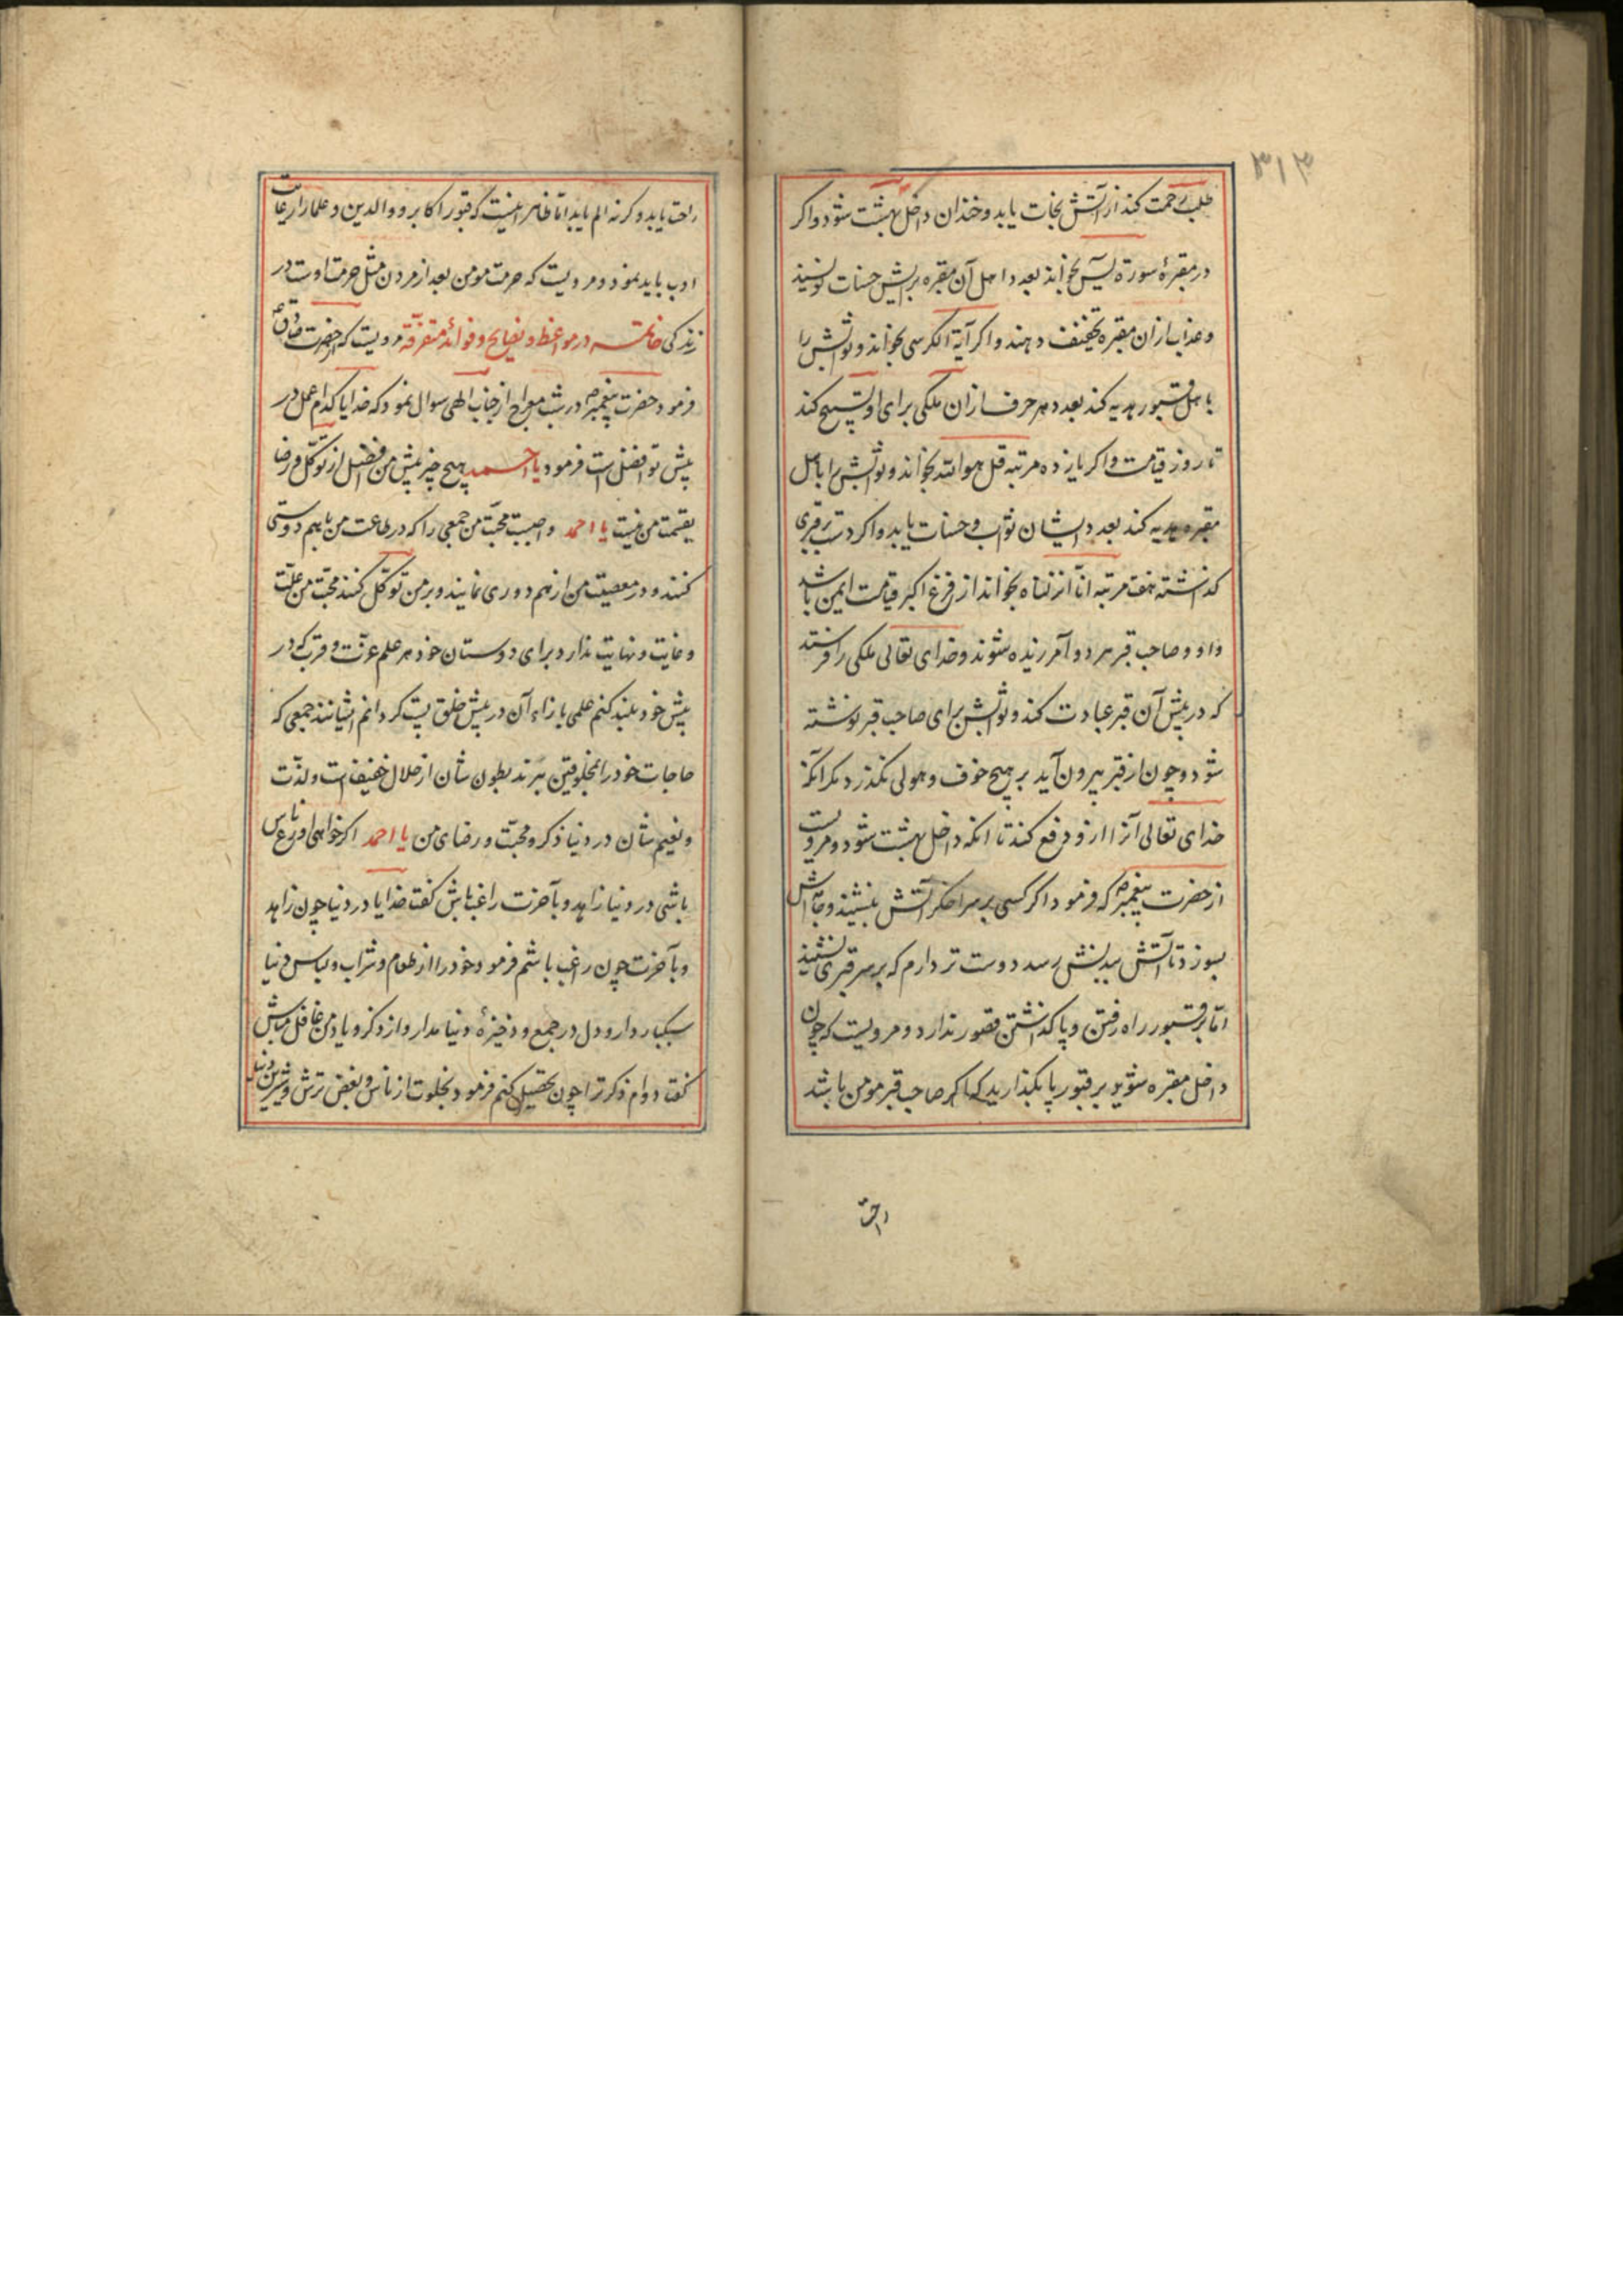 ۳۱۳
طلب رحمت کند از آتش نجات یابد و خندان داخل بهشت شود و اکر
در مقبرهٔ سورة یسۤ بخواند بعدد اهل آن مقبره برایش حسنات نویسند
و عذاب از ان مقبره تخفیف دهند و اکر آیة الکرسی بخواند و ثوابش را
باهل قبور هدیه کند بعدد هر حرف از ان ملکی برای او تسبیح کند
تا روز قیامت و اکر یازده مرتبه قل هو الله بخواند و ثوابش را باهل
مقبره هدیه کند بعدد ایشان ثواب و حسنات یابد و اکر دست بر قبری
کذاشته هفت مرتبه انّا انزلناه بخواند از فزع اکبر قیامت ایمن باشد
و او و صاحب قبر هر دو آمرزیده شوند و خدای تعالی ملکی را فرستد
که در پیش آن قبر عبادت کند و ثوابش برای صاحب قبر نوشته
شود و چون از قبر بیرون آید بر هیچ خوف و هولی نکذرد مکر انکه
خدای تعالی آنرا از و دفع کند تا انکه داخل بهشت شود و مرویست
از حضرت پیغمبر ص که فرمود اکر کسی بر سر اخکر آتش بنشیند و جامه اش
بسوزد تا آتش ببدنش رسد دوست تر دارم که بر سر قبری نشیند
امّا بر قبور راه رفتن و پا کذاشتن قصور ندارد و مرویست که چون
داخل مقبره شوید بر قبور پا بکذارید که اکر صاحب قبر مومن باشد
راحت
راحت یابد و کرنه الم یابد امّا ظاهر اینست که قبور اکابر و والدین و علما را رعایت
ادب باید نمود و مرویست که حرمت مومن بعد از مردن مثل حرمت اوست در
زندکی خاتمه در مواعظ و نصایح و فوائد متفرّقه مرویست که حضرت صادق ع
فرمود حضرت پیغمبر ص در شب معراج از جناب الهی سوال نمود که خدایا کدام عمل در
پیش تو افضل است فرمود یا احمد هیچ چیز پیش من افضل از توکّل و رضا
بقسمت من نیست یا احمد واجبست محبّت من جمعی را که در طاعت من باهم دوستی
کنند و در معصیت من از هم دوری نمایند و بر من توکّل کنند محبّت من علّت
و غایت و نهایت ندارد برای دوستان خود هر علم عزّت و قرب که در
پیش خود بلند کنم علمی بازاء آن در پیش خلق پست کردانم ایشانند جمعی که
حاجات خود را بمخلوقین نبرند بطون شان از حلال خفیف است و لذّت
و نعیم شان در دنیا ذکر و محبّت و رضای من یا احمد اکر خواهی اورع ناس
باشی در دنیا زاهد و بآخرت راغب باش کفت خدایا در دنیا چون زاهد
و بآخرت چون راغب باشم فرمود خود را از طعام و شراب و لباس دنیا
سبکبار دار و دل در جمع و ذخیرهٔ دنیا مدار و از ذکر و یاد من غافل مباش
کفت دوام ذکر ترا چون تحصیل کنم فرمود بخلوت از ناس و بغض ترش و شیرین دنیا